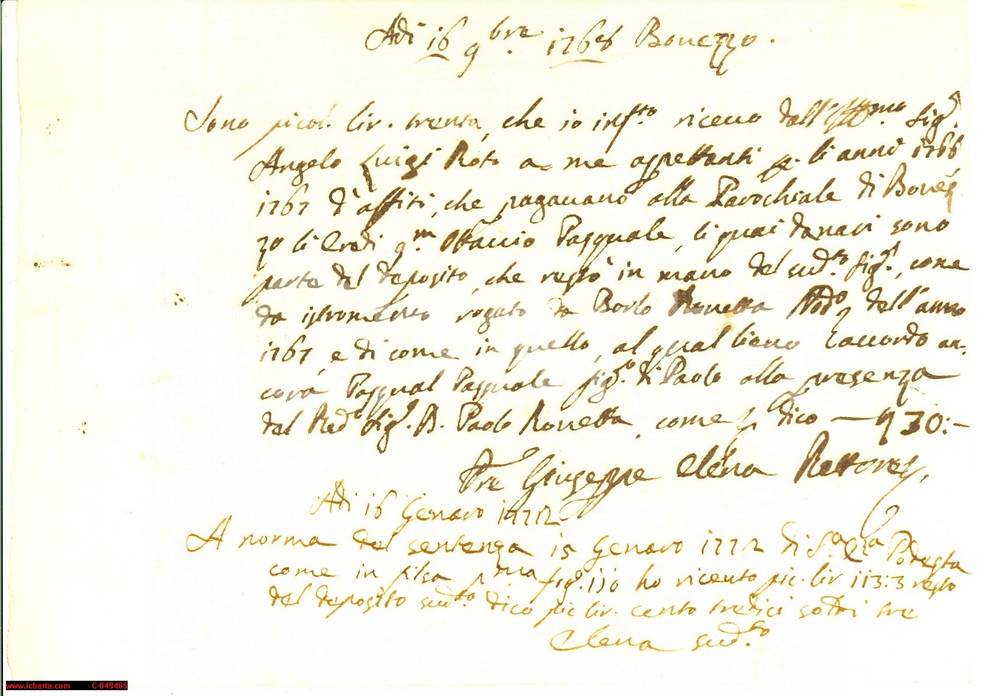 Adi 16 9bre 1768 Bonezzo.
Sono picol. lir. trenta, che io insto ricevo dall'Illmo Sigr.
Angelo Luigi Rota a me aspettanti p. li anni 1766
1767 d'affiti, che pagavano alla Parochiale di Bonez
zo li Eredi qm Ottavio Pasquale, li quai danari sono
parte del deposito, che restò in mano del sudto Sigr., come
da istromento rogato da Bortlo Ronetta Nodo dell'anno
1767, e di come in quello, al qual siano l'accordo an,
corà Pasqual Pasquale figo. di Paolo alla presenza
del Redo Sigr. D. Paolo Ronetta, come s. dico — 930:-
Pre Giuseppe Elena Rettores,
Adi 16 Genaro 1772
A norma del sentenza 15 Genaro 1772 di S. Ecza Podesta
come in filza pma fig. 110 ho riceuto pic. lir 113:3 resto
del deposito sudto dico pic lir. cento tredici soldi tre
Elena sudto
www.icharta.com C-049465